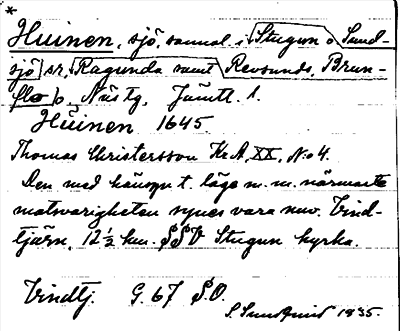 *
Huinen, sjö, samal i Stugun o Sund-
sjö sr, Ragunda samt Revsunds, Brun-
flo o. Näs tg, Jämtl. l.
Huinen 1645
Thomas Christersson K.A, XX, No 4.
Den med hänsyn t. läge m. m. närmaste
motsvarigheten synes vara nuv. Vind-
tjärn, 12½ km. SSV Stugun kyrka.
Vindtj. G. 67 S.O.
S. Sundqvist 1935.